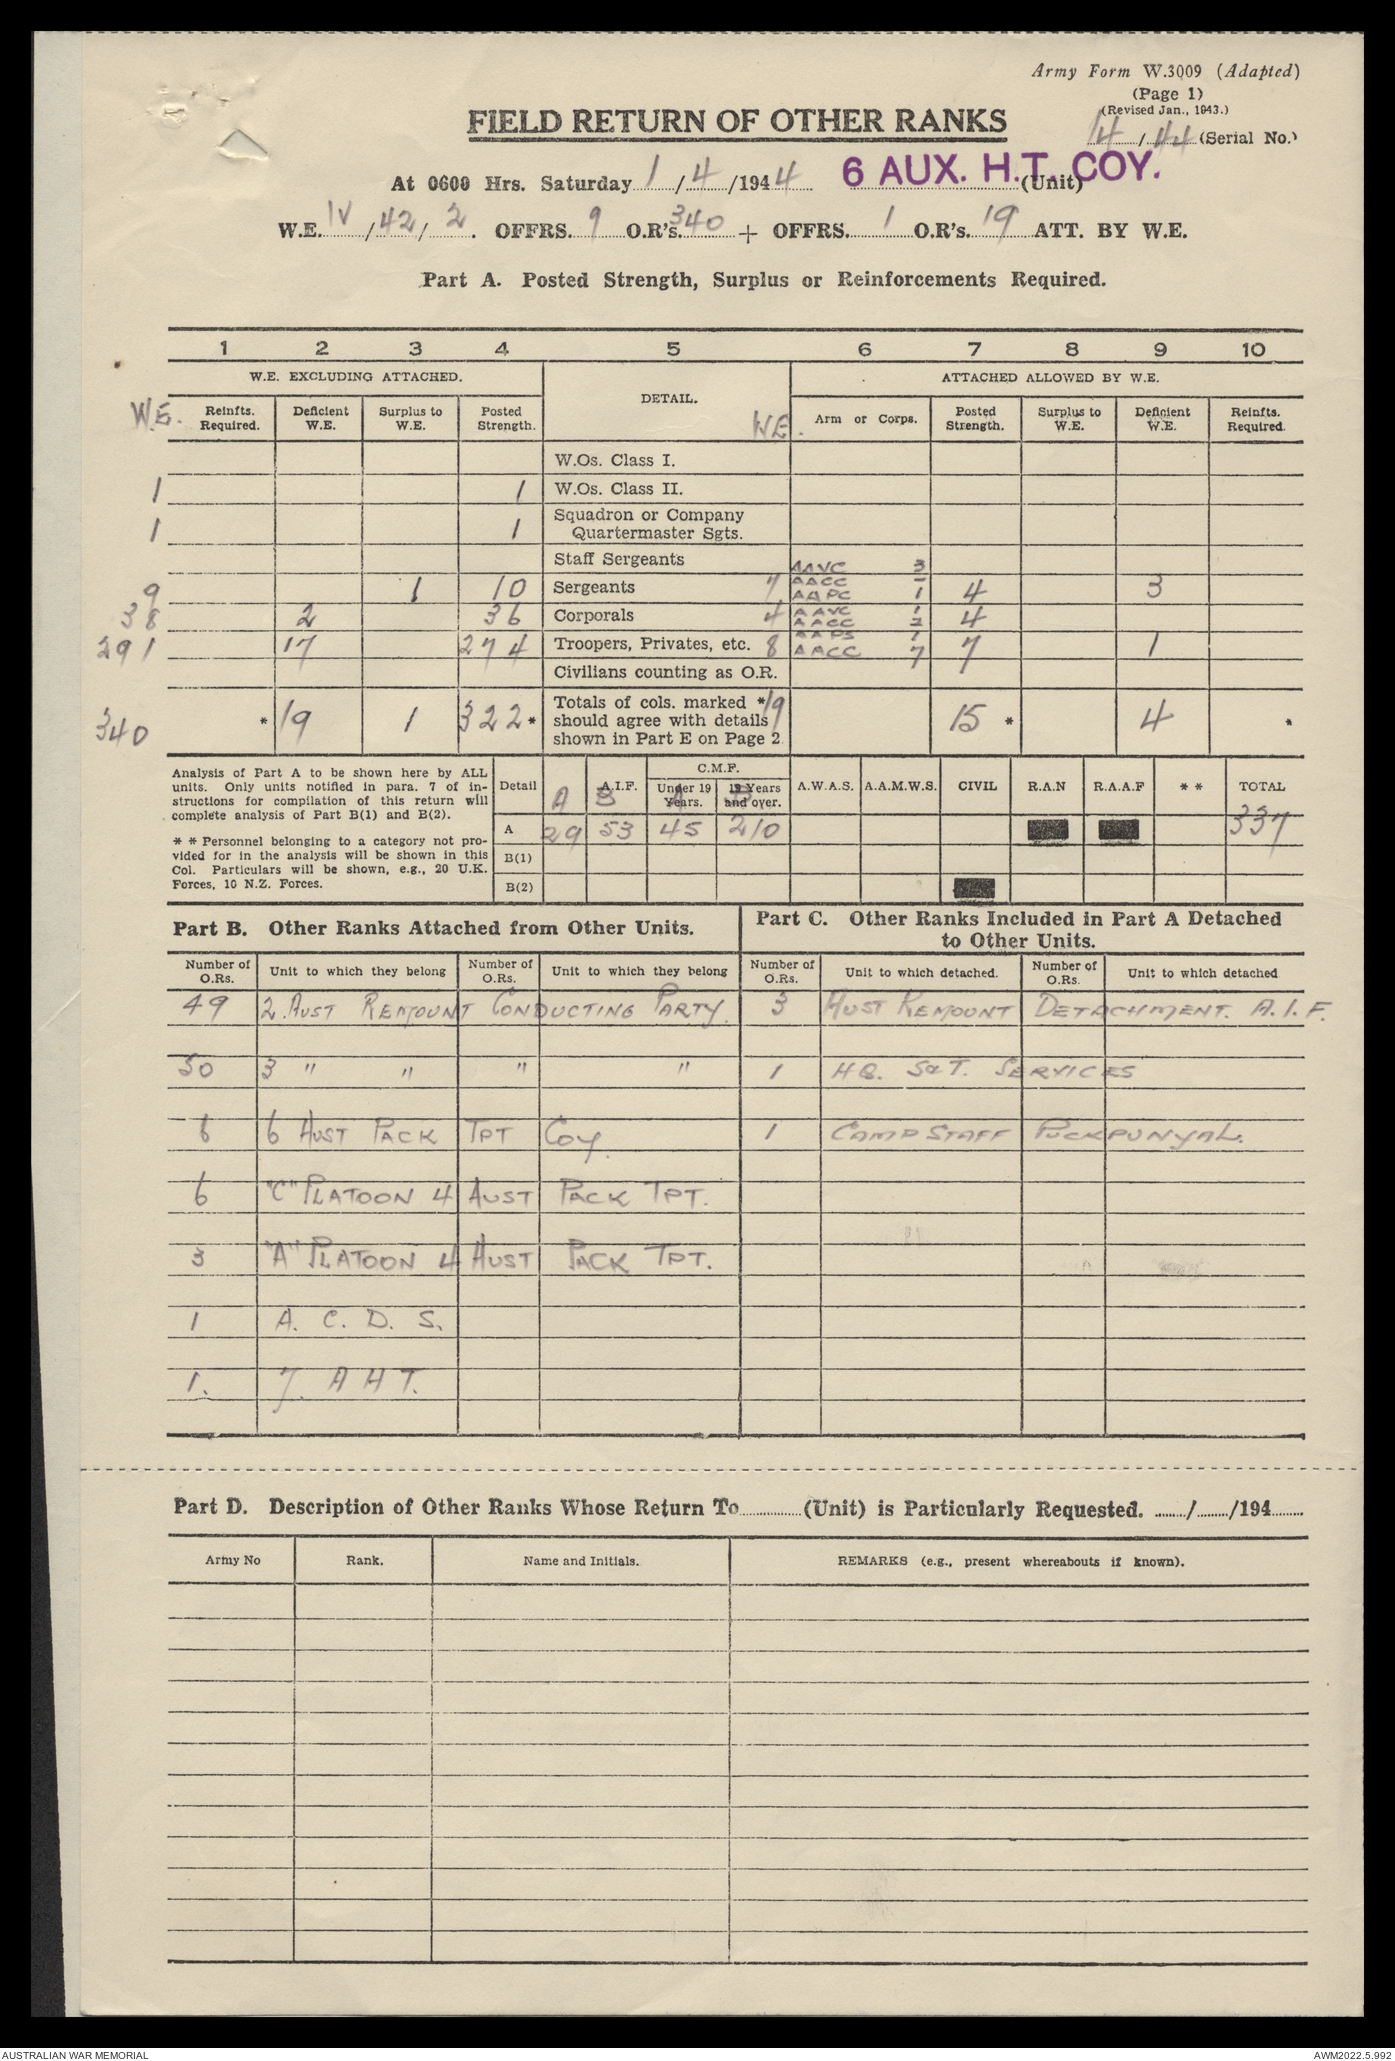 Army Form W.3009 (Adapted)
(Page 1)
(Revised Jan., 1943.)
FIELD RETURN OF OTHER RANKS
14/44 (Serial No.)
At 0600 Hrs. Saturday 1/4/1944 6 AUX. H.T. COY. (Unit)
W.E. IV/42/2. OFFRS. 9 O.R's. 340 + OFFRS. 1 O.R's. 19 ATT. BY W.E.
Part A. Posted Strength, Surplus or Reinforcements Required.
1 2 3 4 5 6 7 8 9 10
W.E. EXCLUDING ATTACHED. DETAIL. ATTACHED ALLOWED BY W.E.
W.E. Reinfts. Required. Deficient W.E. Surplus to W.E. Posted Strength. W.E. Arm or Corps. Posted Strength. Surplus to W.E. Deficient W.E. Reinfts. Required.
W.Os. Class I.
1 1 W.Os. Class II.
1 1 Squadron or Company Quartermaster Sgts.
Staff Sergeants
AAVC 3
9 1 10 Sergeants 7 AACC - 4 3
AAPC 1
38 2 36 Corporals 4 AAVC 1 4
AACC 2
AAPS 1
291 17 274 Troopers, Privates, etc. 8 AACC 7 7 1
Civilians counting as O.R.
340 * 19 1 322* Totals of cols. marked * 19 should agree with details shown in Part E on Page 2. 15 * 4 *
Analysis of Part A to be shown here by ALL
units. Only units notified in para. 7 of in-
structions for compilation of this return will
complete analysis of Part B(1) and B(2).
* * Personnel belonging to a category not pro-
vided for in the analysis will be shown in this
Col. Particulars will be shown, e.g., 20 U.K.
Forces, 10 N.Z. Forces.
C.M.F.
Detail A A.I.F. B Under 19 Years. A 19 Years and over. B A.W.A.S. A.A.M.W.S. CIVIL R.A.N R.A.A.F * * TOTAL
A 29 53 45 210 337
B(1)
B(2)
Part B. Other Ranks Attached from Other Units.
Part C. Other Ranks Included in Part A Detached
to Other Units.
Number of O.Rs. Unit to which they belong Number of O.Rs. Unit to which they belong Number of O.Rs. Unit to which detached. Number of O.Rs. Unit to which detached
49 2. AUST REMOUNT CONDUCTING PARTY. 3 AUST REMOUNT DETACHMENT. A.I.F.
50 3 " " " " 1 HQ. S&T. SERVICES
6 6 AUST PACK TPT COY. 1 CAMP STAFF PUCKPUNYAL.
6 "C" PLATOON 4 AUST PACK TPT.
3 "A" PLATOON 4 AUST PACK TPT.
1 A. C. D. S.
1. 7. A H T.
Part D. Description of Other Ranks Whose Return To............(Unit) is Particularly Requested. ....../....../194......
Army No Rank. Name and Initials. REMARKS (e.g., present whereabouts if known).
AUSTRALIAN WAR MEMORIAL AWM2022.5.992